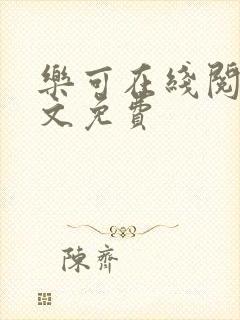 樂可在綫閱
文免費
陳齊